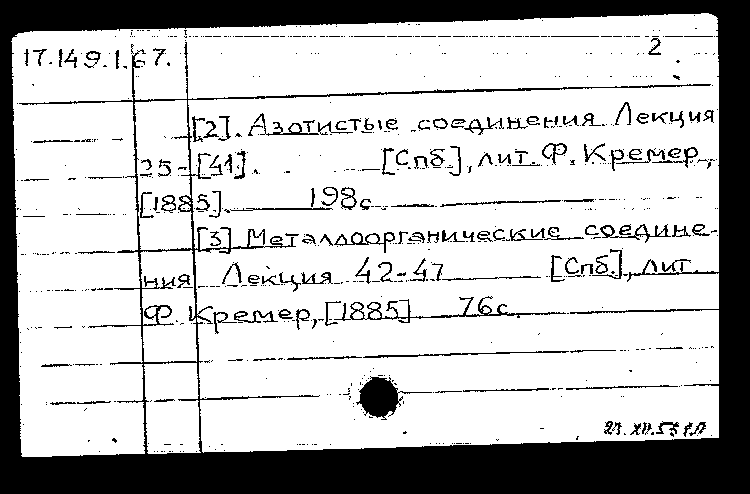 17.149.1.67.
2
[2]. Азотистые соединения Лекция
25-[41]. [Спб.], лит. Ф. Кремер,
[1885]. 198с
[3] Металлоорганические соедине-
ния Лекция 42-47 [Спб.], лит.
Ф. Кремер, [1885] 76с.